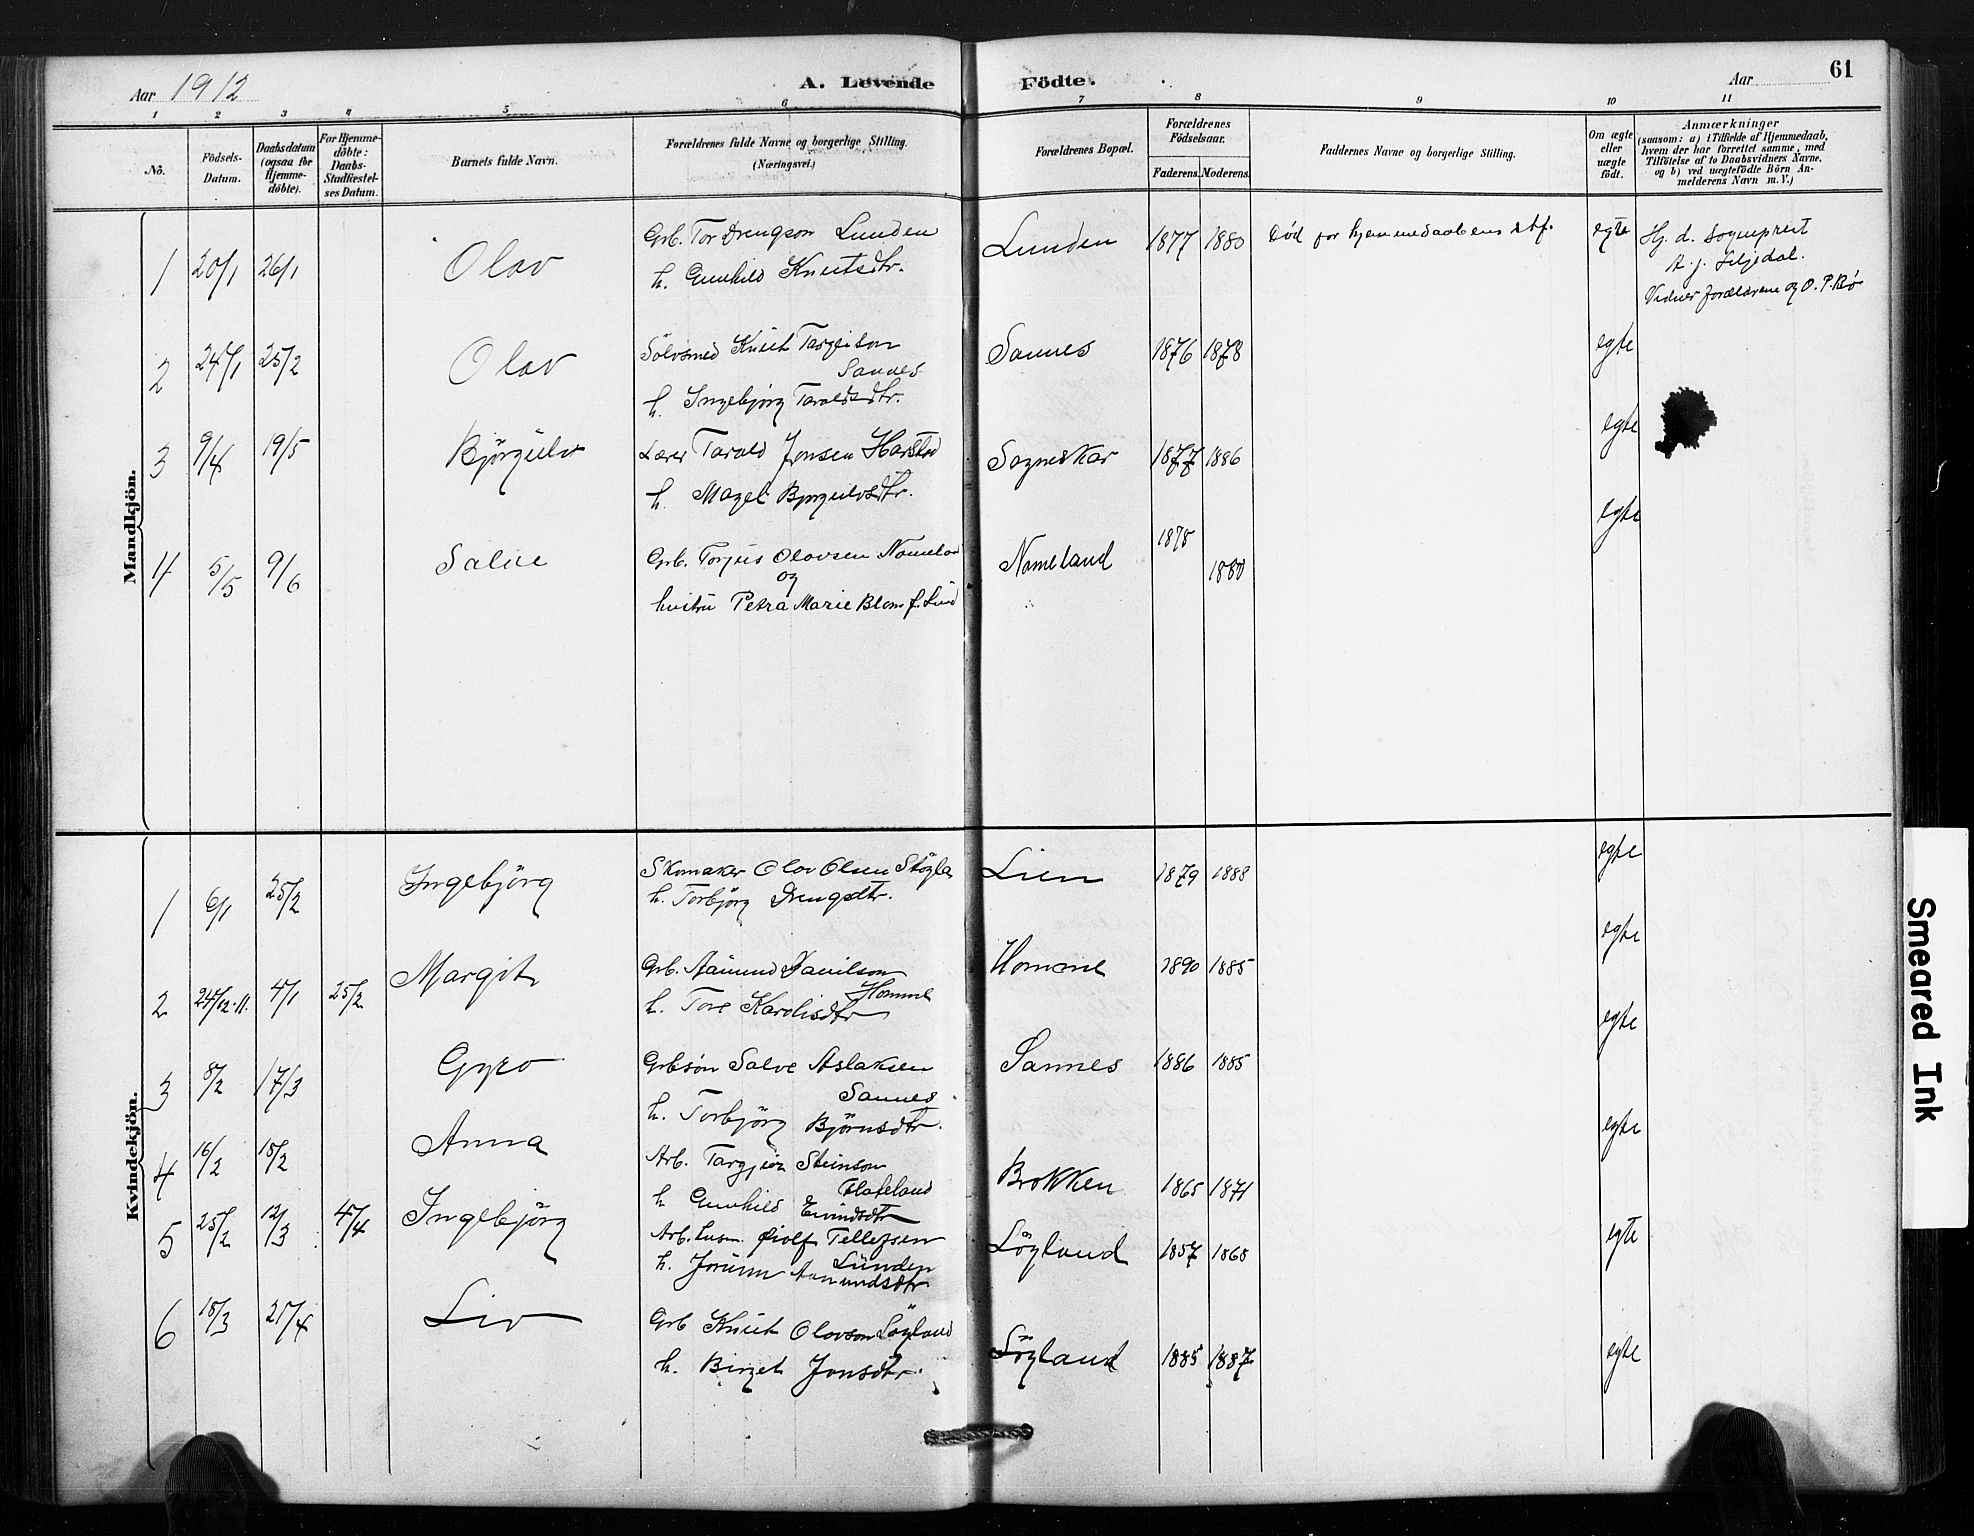 Aar 1912
A. Levende
Födte.
Aar
61
1 2 3 4 5 6 7 8 9 10 11
No.
Födsels-Datum.
Daabsdatum (ogsaa for Hjemme-döbte).
For Hjemme-döbte: Daabs-Stadfæstel-ses Datum.
Barnets fulde Navn.
Forældrenes fulde Navne og borgerlige Stilling. (Næringsvei.)
Forældrenes Bopæl.
Forældrenes Födselsaar.
Faderens. Moderens.
Faddernes Navne og borgerlige Stilling.
Om ægte eller uægte födt.
Anmærkninger
(saasom: a) i Tilfælde af Hjemmedaab,
hvem der har forrettet samme, med
Tilföielse af to Daabsvidners Navne,
og b) ved uægtefödte Börn An-
melderens Navn m. V.)
Mandkjön.
1 20/1 26/1 Olav Grb. Tor Drengson Lunden Lunden 1877 1880 Död for hjemmedaabens stf. egte Hj. d. Sogneprest
h. Gunhild Knutsdtr. A. J. Liljedal.
Vidner forældrene og O. P. Bö
2 24/1 25/2 Olav Sölvsmed Knut Targeison Sannes 1876 1878 egte
Sannes
h. Ingebjörg Taraldsdtr.
3 9/4 19/5 Björgulv Lærer Tarald Jonsen Harstad Sogneskar 1877 1886 egte
h. Margit Bjorgulvsdtr.
4 5/5 9/6 Salve Grb. Torjus Olavsen Nomeland Nomeland 1878 1880 egte
og
hustru Petra Marie Blom f. Lund
Kvindekjön.
1 6/1 25/2 Ingebjörg Skomaker Olav Olsen Lien 1879 1888 egte
h. Torbjörg Drengsdtr.
2 24/12-11. 4/1 25/2 Margit Grb. Aamund Danilson Homme 1890 1885 egte
Homme
h. Tore Karolisdtr
3 8/2 17/3 Gyro Grbsön Salve Aslaksen Sannes 1886 1885 egte
Sannes
h. Torbjörg Björnsdtr.
4 16/2 15/2 Anna Arb. Targjei Steinson Brokken 1865 1871 egte
Flateland
h Gunhild Eivindsdtr
5 25/2 12/3 4/4 Ingebjörg Arb. Lusm. Eiolf Tellefsen Löyland 1857 1868 egte
Lunden
h. Jorunn Aamundsdtr
6 18/3 21/4 Liv Grb Knut Olavson Löyland Löyland 1885 1887 egte
h. Birget Jonsdtr.
Smeared Ink